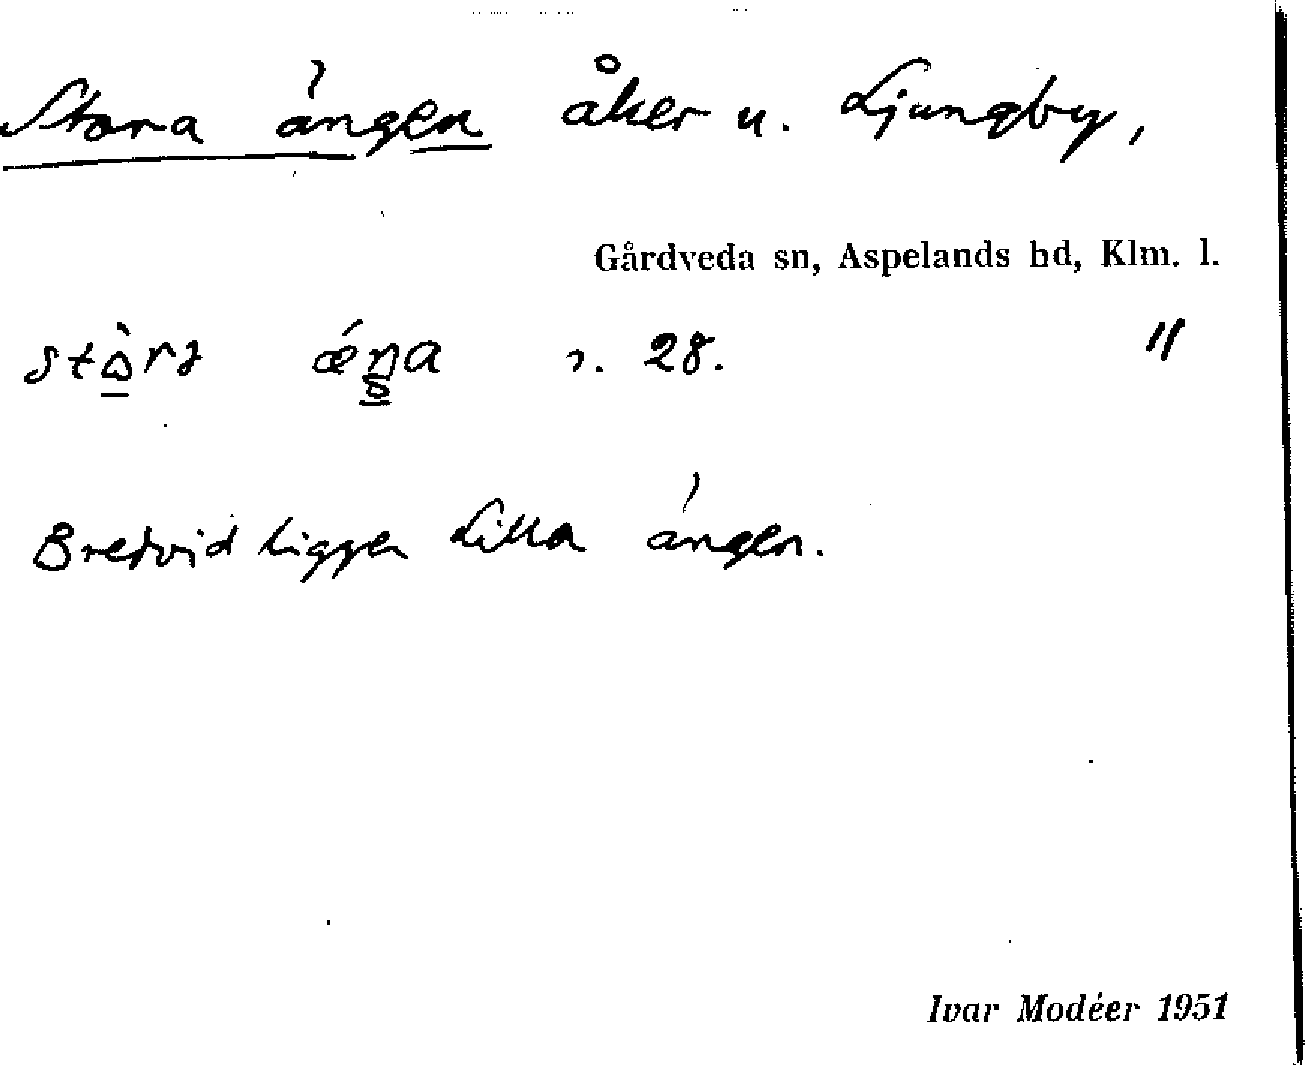 Stora ängen åker u. Ljungby,
Gårdveda sn, Aspelands hd, Klm. l.
28. "
Bredvid ligger Lilla ängen.
Ivar Modéer 1951